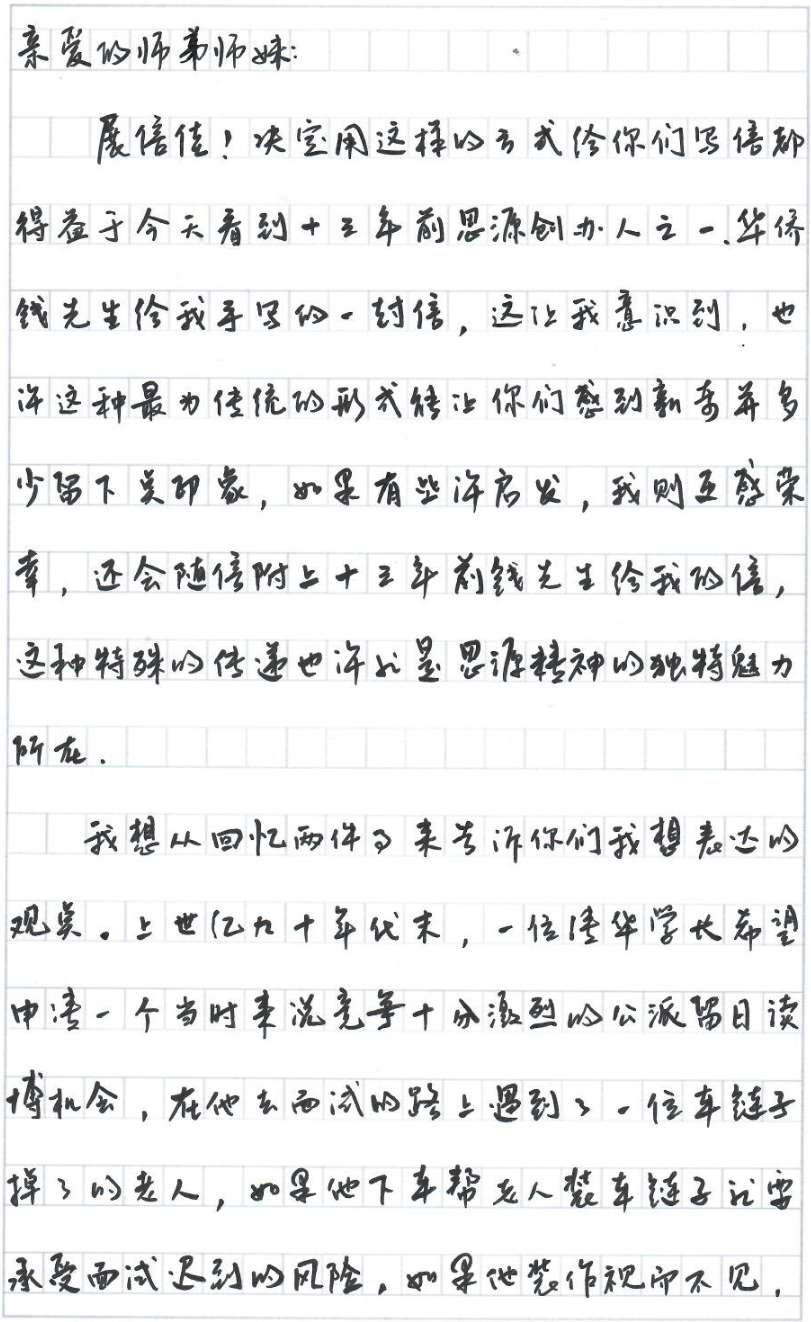 亲爱的师弟师妹:
展信佳!决定用这样的方式给你们写信都
得益于今天看到十三年前思源创办人之一、华侨
钱先生给我手写的一封信,这让我意识到,也
许这种最为传统的形式能让你们感到新奇并多
少留下点印象,如果有些许启发,我则互感荣
幸,还会随信附上十三年前钱先生给我的信,
这种特殊的传递也许就是思源精神的独特魅力
所在.
我想从回忆两件事来告诉你们我想表达的
观点。上世纪九十年代末,一位清华学长希望
申请一个当时来说竞争十分激烈的公派留日读
博机会,在他去面试的路上遇到了一位车链子
掉了的老人,如果他下车帮老人装车链子就要
承受面试迟到的风险,如果他装作视而不见,